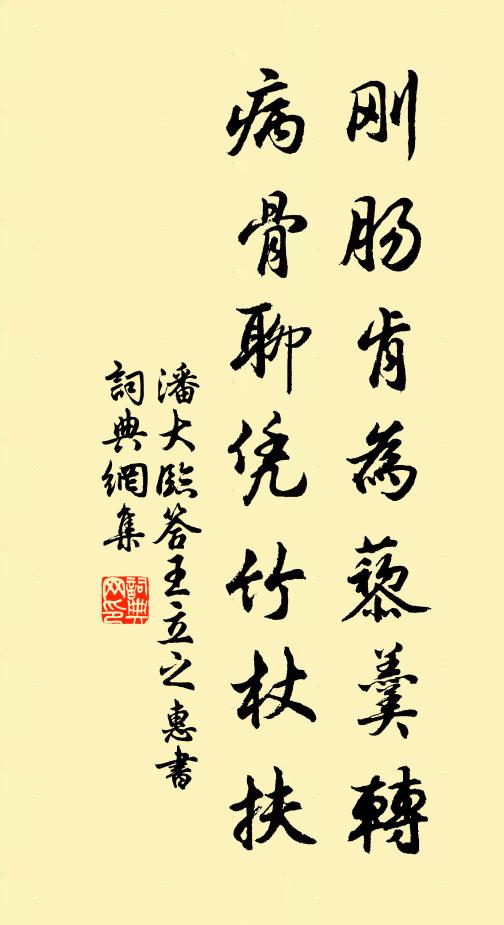 刚肠肯为藜羹轉
病骨聊凭竹杖扶
潘大臨答王立之惠書
詞典網集
詞典网印